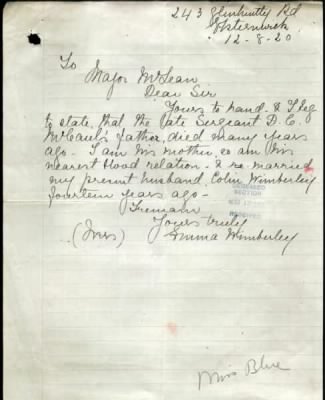 243 Glenhuntly Rd
Elsternwick
12-8-20
To
Major McLean
Dear Sir
Yours to hand. & I beg
to state, that the late Sergeant D. C.
McCaul's father, died many years
ago - I am his mother, so am his
nearest blood relation - & re-married
my present husband, Colin Wimberley
fourteen years ago -
I remain
Yours truly
(Mrs) Emma Wimberley
DECEASED
SECTION
RECEIVED
Miss Blue